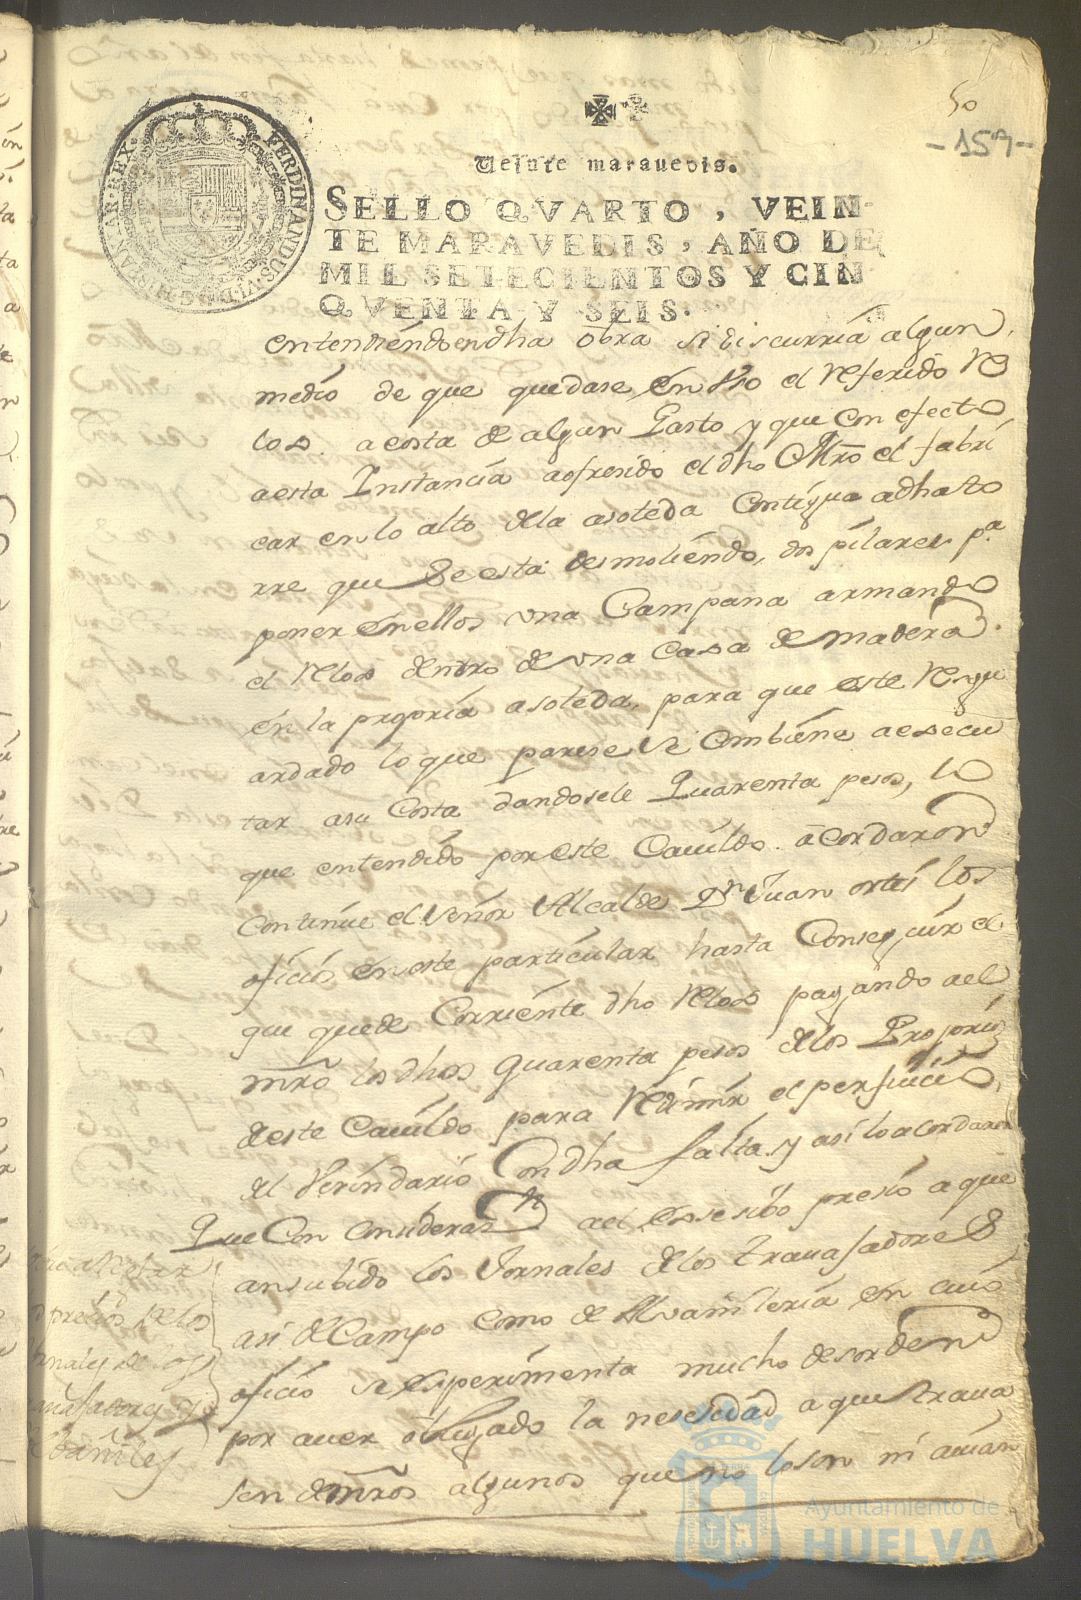 50
-159-
Veinte marauedis.
SELLO QVARTO, VEIN-
TE MARAVEDIS, AÑO DE
MIL SETECIENTOS Y CIN
QVENTA Y SEIS.
FERDINANDUS·VI·D·G·HISPANIAR·REX·
entendiendo en dha obra se discurria algun
medio de que quedase en uso el referido Re
lox a costa de algun Gasto y que con efecto
a esta Instancia a ofresido el dho Mro el fabri
car en lo alto de la asoteda contigua a dha to
rre que se esta desmoliendo, dos pilares pa
poner en ellos una Campana armando
el Relox dentro de una casa de madera
en la propria asoteda, para que este Resgu
ardado lo que parese se combiene a executar
tar a su Costa dandosele Quarenta pesos, lo
que entendido por este Cauildo acordaron
continue el Señor Alcalde Dn Juan orti los
oficios en este particular hasta Conseguir el
que quede Corriente dho Relox pagando a el
mro los dhos quarenta pesos de los Proprios
de este Cauildo para Redimir el perjuicio
del Vecindario Con dha falta y asi lo acordaron
Que Con consideraon a el exsesibo presio a que
an subido los Jornales de los trauajadores
asi de Campo como de Alvañileria en cuio
oficio se esperimenta mucho desorden
por auer obligado la nesesidad a que traua
sen de mros algunos que no lo son ni auian
presios de los
Ayuntamiento de
HUELVA